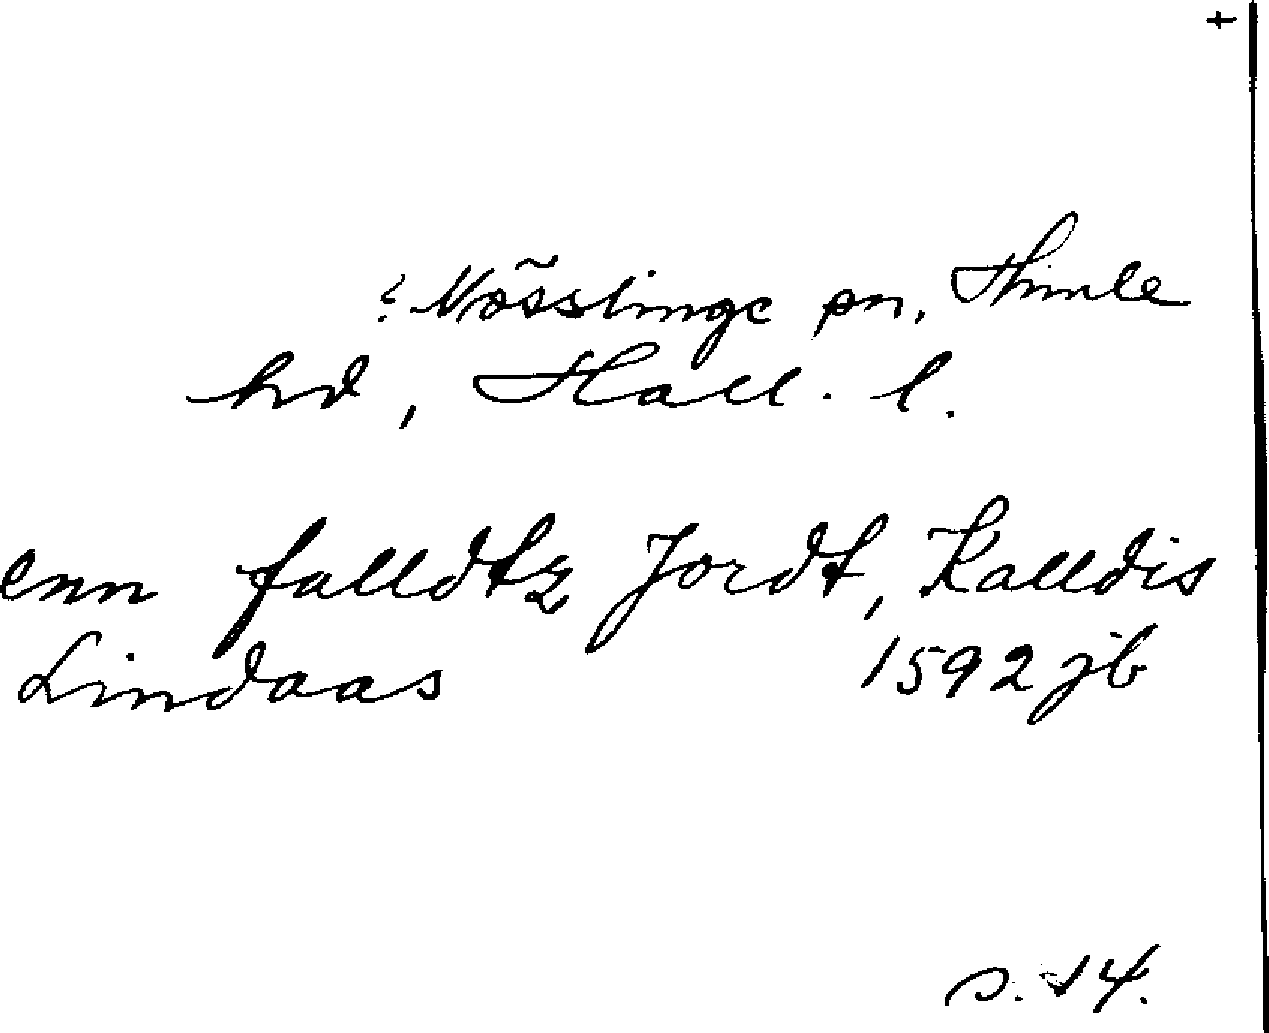 +
? Nösslinge sn, Himle
hd, Hall. l.
enn falldtz Jordt, Kalldis
Lindaas 1592 jb
s. 14.